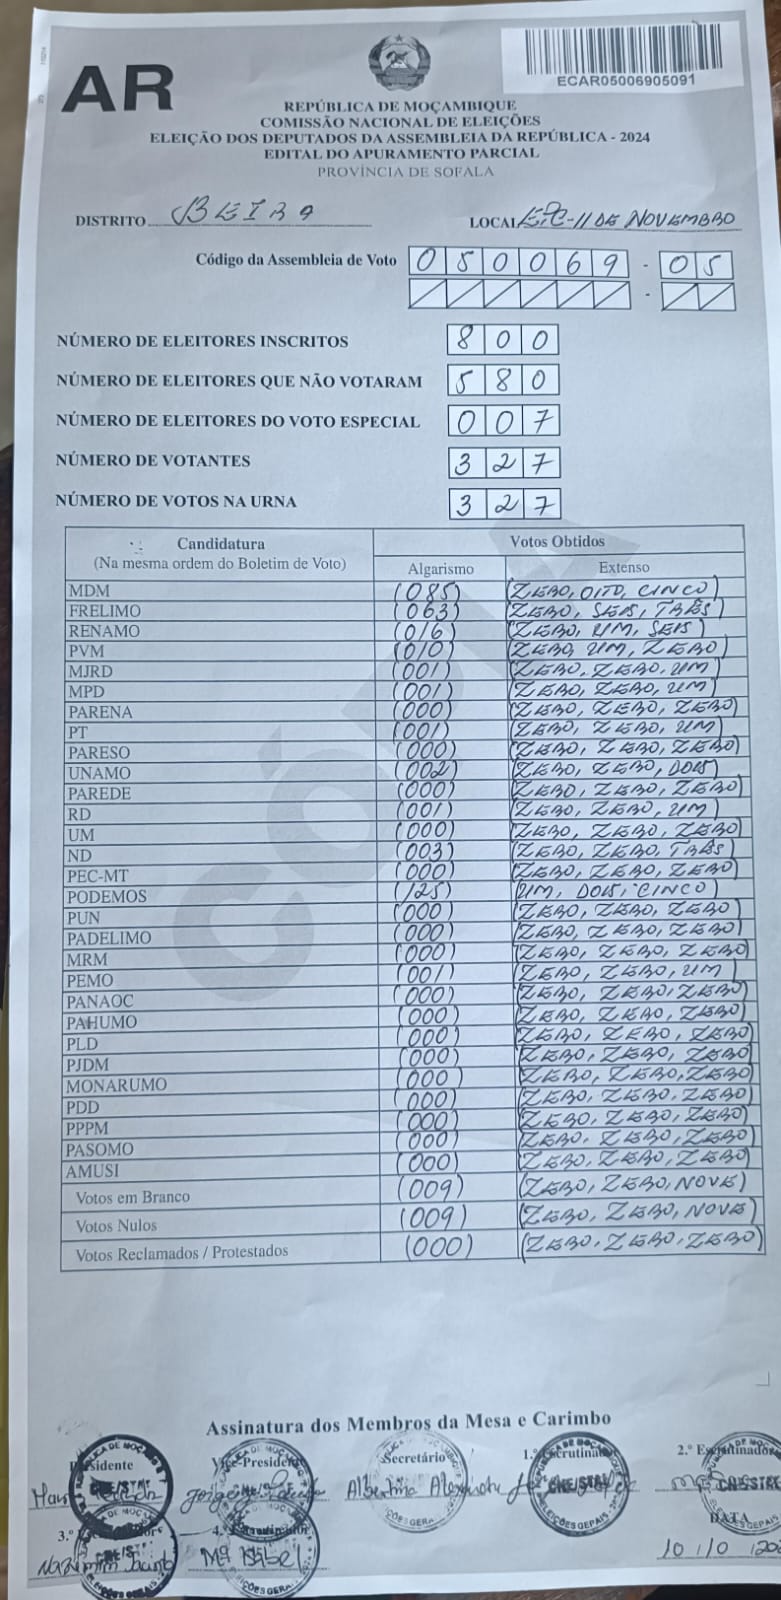 AR
ECAR05006905091
REPÚBLICA DE MOÇAMBIQUE
COMISSÃO NACIONAL DE ELEIÇÕES
ELEIÇÃO DOS DEPUTADOS DA ASSEMBLEIA DA REPÚBLICA - 2024
EDITAL DO APURAMENTO PARCIAL
PROVÍNCIA DE SOFALA
DISTRITO BEIRA LOCAL EPC-11 DE NOVEMBRO
Código da Assembleia de Voto 050069 - 05
NÚMERO DE ELEITORES INSCRITOS 800
NÚMERO DE ELEITORES QUE NÃO VOTARAM 580
NÚMERO DE ELEITORES DO VOTO ESPECIAL 007
NÚMERO DE VOTANTES 327
NÚMERO DE VOTOS NA URNA 327
Candidatura Votos Obtidos
(Na mesma ordem do Boletim de Voto) Algarismo Extenso
MDM (085) (ZERO, OITO, CINCO)
FRELIMO (063) (ZERO, SEIS, TRÊS)
RENAMO (016) (ZERO, UM, SEIS)
PVM (010) (ZERO, UM, ZERO)
MJRD (001) (ZERO, ZERO, UM)
MPD (001) (ZERO, ZERO, UM)
PARENA (000) (ZERO, ZERO, ZERO)
PT (001) (ZERO, ZERO, UM)
PARESO (000) (ZERO, ZERO, ZERO)
UNAMO (002) (ZERO, ZERO, DOIS)
PAREDE (000) (ZERO, ZERO, ZERO)
RD (001) (ZERO, ZERO, UM)
UM (000) (ZERO, ZERO, ZERO)
ND (003) (ZERO, ZERO, TRÊS)
PEC-MT (000) (ZERO, ZERO, ZERO)
PODEMOS (125) (UM, DOIS, CINCO)
PUN (000) (ZERO, ZERO, ZERO)
PADELIMO (000) (ZERO, ZERO, ZERO)
MRM (000) (ZERO, ZERO, ZERO)
PEMO (001) (ZERO, ZERO, UM)
PANAOC (000) (ZERO, ZERO, ZERO)
PAHUMO (000) (ZERO, ZERO, ZERO)
PLD (000) (ZERO, ZERO, ZERO)
PJDM (000) (ZERO, ZERO, ZERO)
MONARUMO (000) (ZERO, ZERO, ZERO)
PDD (000) (ZERO, ZERO, ZERO)
PPPM (000) (ZERO, ZERO, ZERO)
PASOMO (000) (ZERO, ZERO, ZERO)
AMUSI (000) (ZERO, ZERO, ZERO)
Votos em Branco (009) (ZERO, ZERO, NOVE)
Votos Nulos (009) (ZERO, ZERO, NOVE)
Votos Reclamados / Protestados (000) (ZERO, ZERO, ZERO)
CÓPIA
Assinatura dos Membros da Mesa e Carimbo
Presidente Vice-Presidente Secretário 1.º Escrutinador 2.º Escrutinador
Albertina
CNE/STAE
DATA
3.º Escrutinador 4.º Escrutinador
Mª Isabel
10 10 202